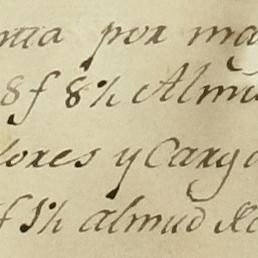 por ma
8f 8½ Almu
lores y Carg
f 1½ almud